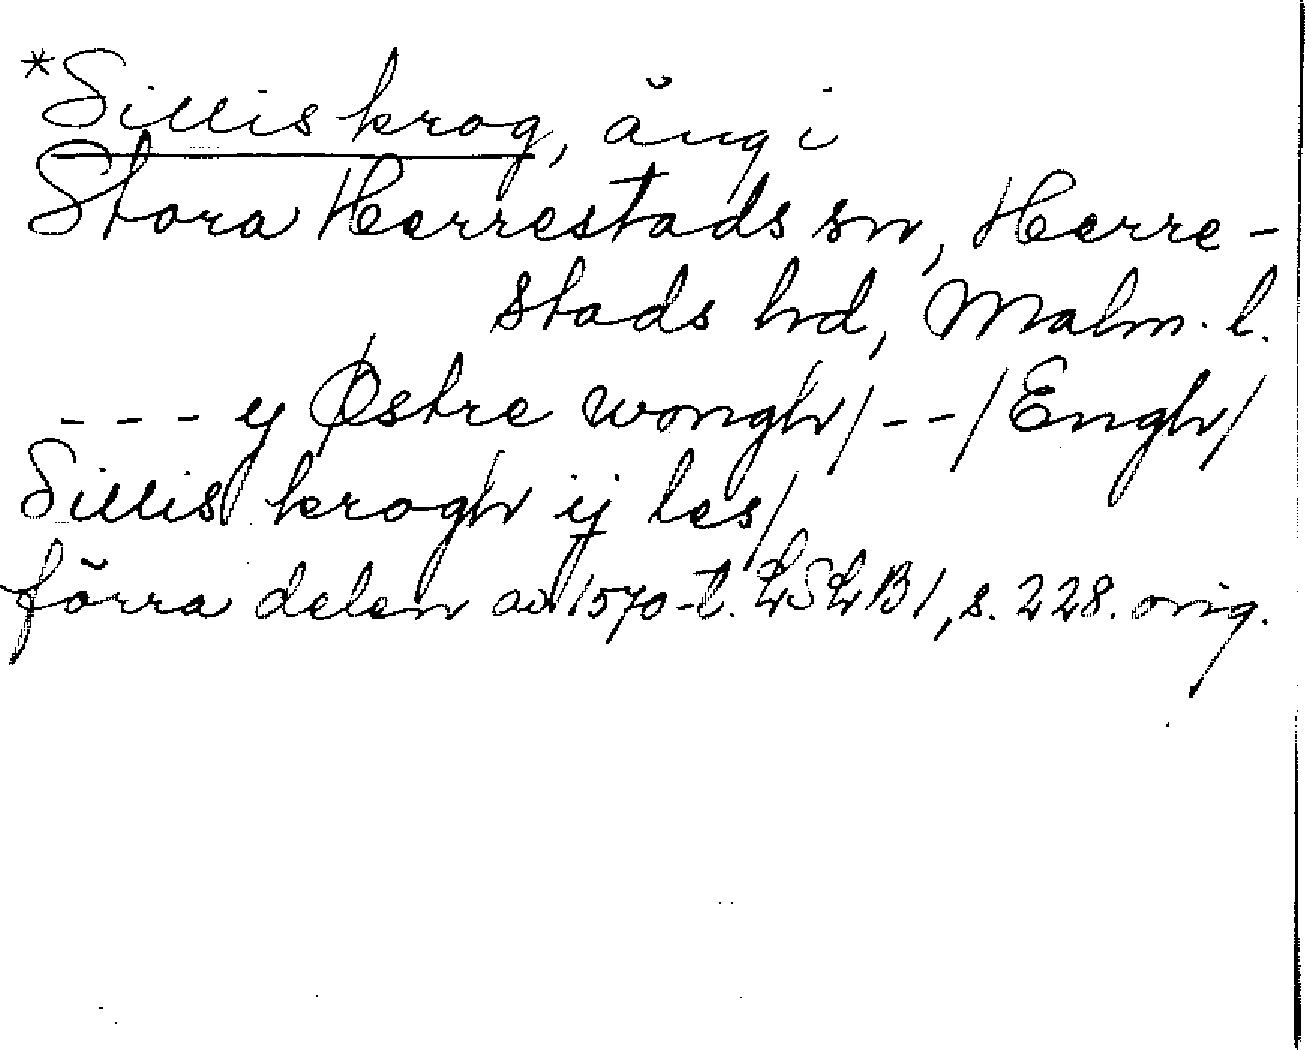 *Silliskrog, äng i
Stora Herrestads sn, Herre-
stads hd, Malm. l.
- - - y Østre wongh/ - - / Engh/
Sillis krogh ij les/
förra delen av 1570-t. LSLB1, s. 228. orig.